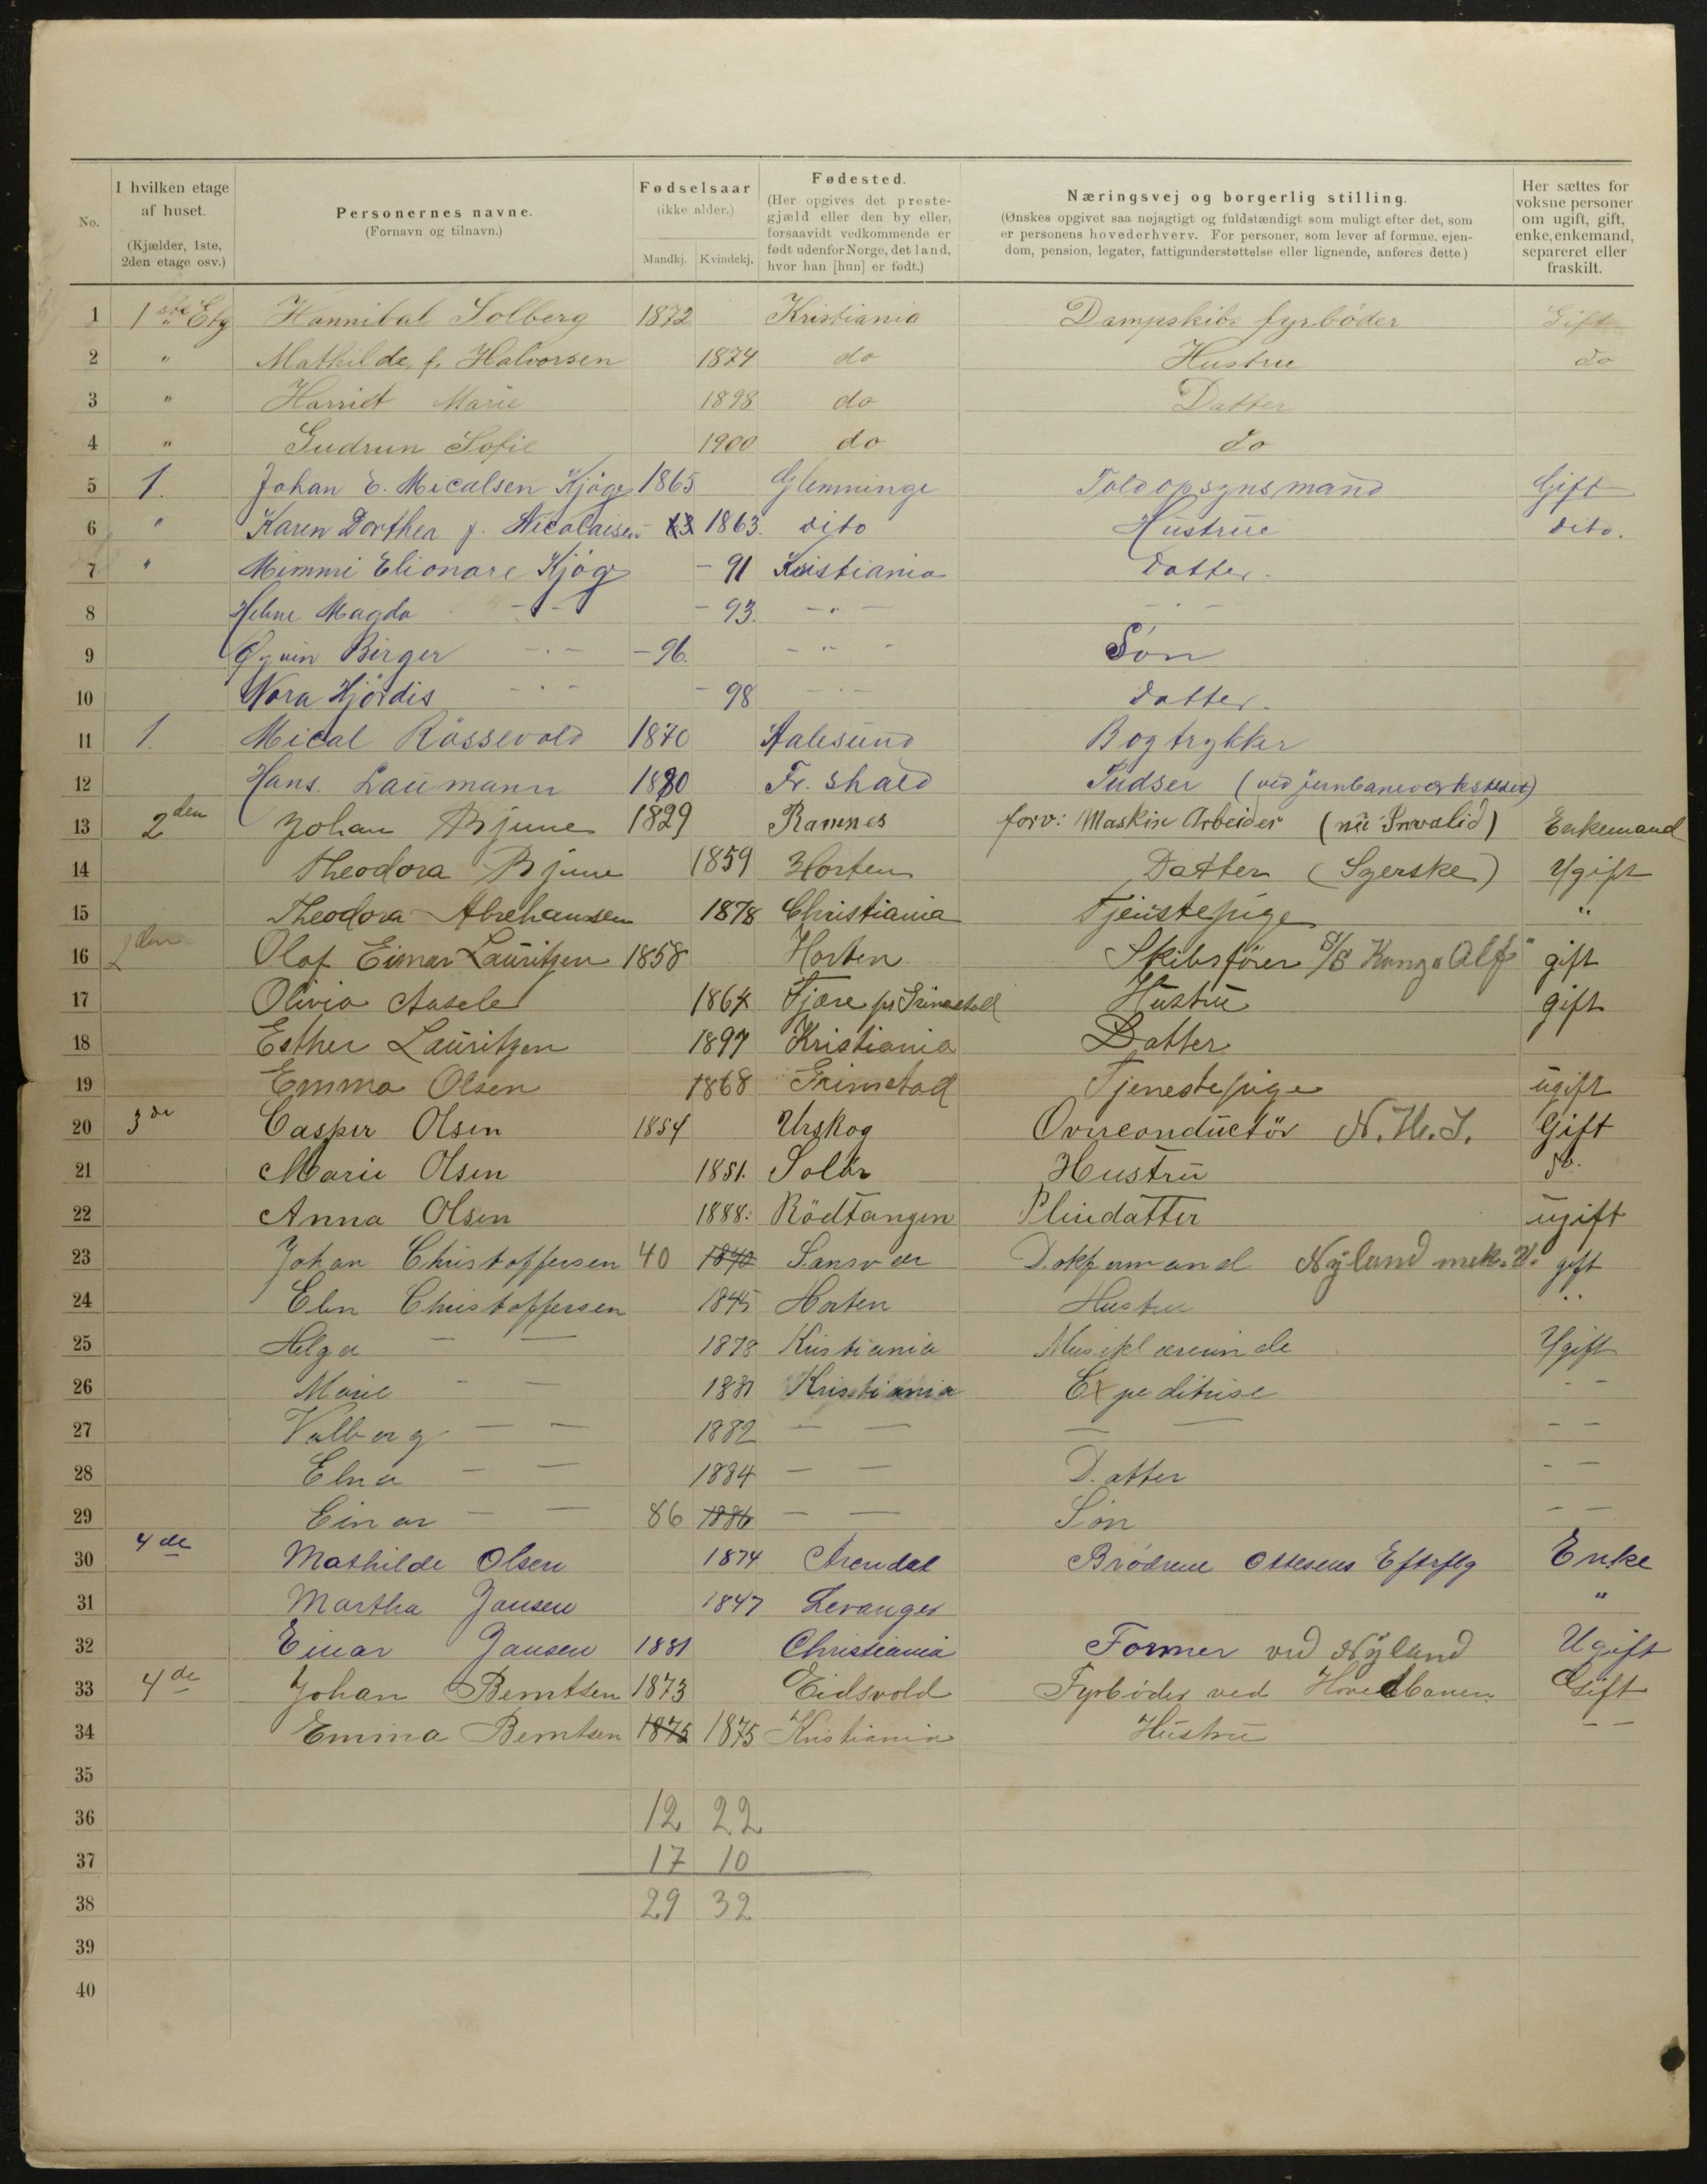 No. I hvilken etage af huset. (Kjælder, 1ste, 2den etage osv.) Personernes navne. (Fornavn og tilnavn.) Fødselsaar (ikke alder.) Mandkj. Kvindekj. Fødested. (Her opgives det prestegjæld eller den by eller, forsaavidt vedkommende er født udenfor Norge, det land, hvor han [hun] er født.) Næringsvej og borgerlig stilling. (Ønskes opgivet saa nøjagtigt og fuldstændigt som muligt efter det, som er personens hovederhverv. For personer, som lever af formue, ejendom, pension, legater, fattigunderstøttelse eller lignende, anføres dette.) Her sættes for voksne personer om ugift, gift, enke, enkemand, separeret eller fraskilt.
1 1ste Etg Hannibal Solberg 1872 Kristiania Dampskibs fyrbøder Gift
2 " Mathilde f. Halvorsen 1874 do Hustrue do
3 " Harriet Marie 1898 do Datter
4 " Gudrun Sofie 1900 do do
5 1. Johan E. Micalsen Kjøge 1865 Glemminge Toldopsynsmand Gift
6 " Karen Dorthea f. Nicolaisen 63 1863. dito Hustrue dito.
7 " Mimmi Elionare Kjøge - 91 Kristiania Datter.
8 Helene Magda - " - - 93. - " - - " -
9 Øyvin Birger - " - - 96. - " - Søn
10 Nora Hjørdis - " - - 98 - " - Datter.
11 1. Mical Røssevold 1870 Aalesund Bogtrykker
12 Hans. Laumann 1880 Fr. shald Pudser (ved jernbaneværkstedet)
13 2den Johan Bjune 1829 Ramnes forv: Maskin Arbeider (nu Invalid) Enkemand
14 Theodora Bjune 1859 Horten Datter (Syerske) Ugift
15 Theodora Abrehamsen 1878 Christiania Tjenstepige "
16 2den Olaf Eimar Lauritzen 1858 Horten Skibsfører S/S Kong "Alf" gift
17 Olivia Aasele 1864 Fjære pr Grimstad Hustru gift
18 Esther Lauritzen 1897 Kristiania Datter
19 Emma Olsen 1868 Grimstad Tjenestepige ugift
20 3de Casper Olsen 1854 Urskog Overconductør N.H.J. Gift
21 Marie Olsen 1851. Solør Hustru do.
22 Anna Olsen 1888. Rödtangen Pleiedatter ugift
23 Johan Christoffersen 40 1840 Sansvær Dokformand Nyland mek. V. gift
24 Elen Christoffersen 1845 Horten Hustru "
25 Helga — — 1878 Kristiania Musiklærerinde Ugift
26 Marie - - 1881 Kristiania Expeditrise - -
27 Valborg — — 1882 — — — — - -
28 Elna — — 1884 — — Datter - -
29 Einar — — 86 1886 — — Søn - -
30 4de Mathilde Olsen 1874 Arendal Brödrene Ottesens Eftrflg Enke
31 Martha Jansen 1847 Levanger "
32 Einar Jansen 1881 Christiania Former ved Nyland Ugift
33 4de Johan Berntsen 1873 Eidsvold Fyrbøder ved Hovedbanen Gift
34 Emma Berntsen 1875 1875 Kristiania Hustru - -
35
36 12 22
37 17 10
38 29 32
39
40